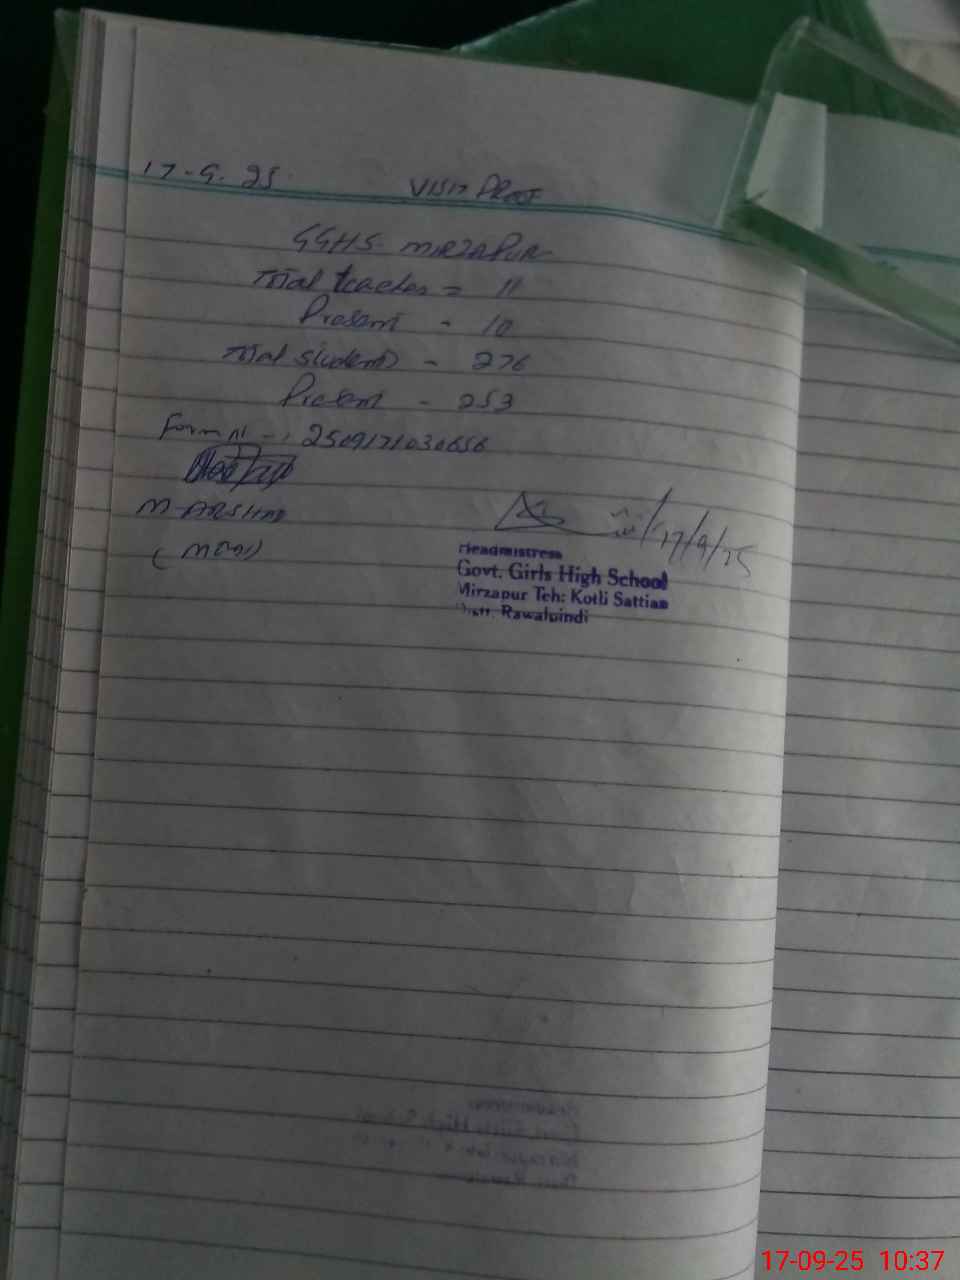 17-9-25
VISIT PROOF
GGHS MIRZAPUR
Total teacher = 11
Present - 10
Total students - 276
Present - 253
Form N - 250917103656
M-ARSHAD
17/9/25
Headmistress
Govt. Girls High School
Mirzapur Teh: Kotli Sattian
Distt. Rawalpindi
17-09-25 10:37